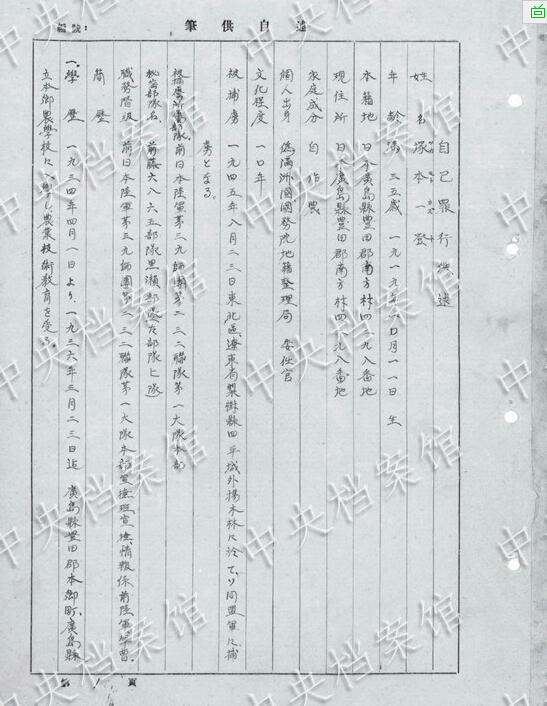 述自供筆
編號：
自己罪行供述
姓名 塚本一登
年齡 満三五歳 一九一九年一〇月一一日生
本籍地 日本廣島縣豊田郡南方村四一九八番地
現住所 日本廣島縣豊田郡南方村四一九八番地
家庭成分 自作農
個人出身 偽滿洲國國務院地籍整理局 委任官
文化程度 一〇年
被捕虜 一九四五年八月二三日東北區、遼東省梨樹縣四平城外楊木林に於て、ソ同盟軍に、捕
虜となる。
被捕虜所屬部隊 前日本陸軍第三九師團第二三二聯隊第一大隊本部
秘密部隊名 前藤六八六五部隊黒瀬部隊 部隊 隊
職務階級 前日本陸軍第三九師團第二三二聯隊第一大隊本部宣撫班宣撫、情報係前陸軍軍曹
簡歴
一、學歴 一九三四年四月一日より、一九三六年三月二三日迄 廣島縣豊田郡本郷町、廣島縣
立本郷農學校に入學し農業技術教育を受る。
第 頁
中央档案馆